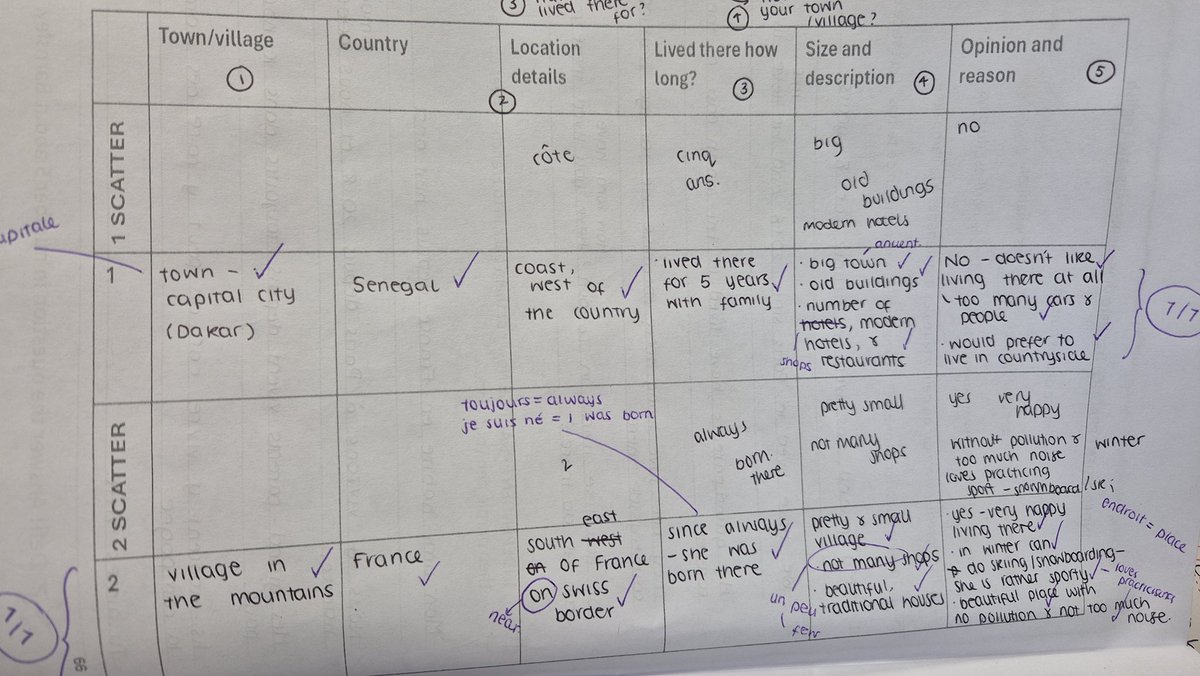 ③
lived there
for?
④ your town
/village?
Town/village
①
Country
②
Location
details
Lived there how
long?
③
Size and
description
④
Opinion and
reason
⑤
1 SCATTER
côte
cinq
ans.
big
old
buildings
modern hotels
no
1
town - ✓
capital city
(Dakar)
Senegal ✓
coast,
west of ✓
the country
· lived there
for 5 years ✓
with family
ancient
· big town ✓ ✓
· old buildings
· number of
hotels, modern
hotels, &
shops restaurants ✓
NO - doesn't like ✓
living there at all
too many cars &
people ✓
· would prefer to ✓
live in countryside
7/7
2 SCATTER
toujours = always
je suis né = i was born
2
always
born
there
pretty small
not many
shops
yes very
happy
without pollution &
too much noise
loves practicing
sport - snowboard/ski
winter
2
village in ✓
the mountains
France ✓
east
south west
of France
on swiss ✓
border
near
since always
- she was ✓
born there
pretty & small
village ✓
not many shops
· beautiful, ✓
traditional houses
un peu
few
· yes - very happy
living there ✓
· in winter can ✓
do skiing/snowboarding -
she is rather sporty ✓ - loves
practicising
· beautiful place with
no pollution & not too much ✓
noise.
endroit = place
7/7
66